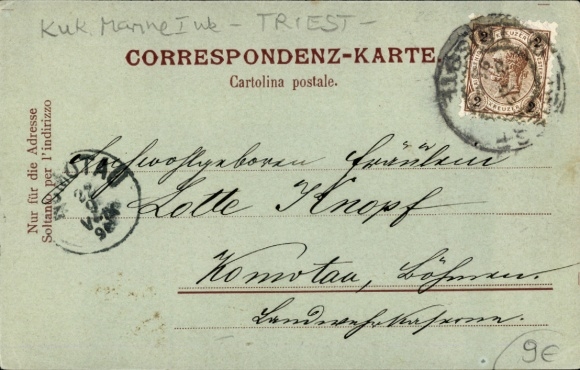 KuK Marine Ink - TRIEST -
CORRESPONDENZ-KARTE.
Cartolina postale.
Nur für die Adresse
Soltanto per l'indirizzo
2 KREUZER 2
KOMOTAU
Hochwohlgeboren Fräulein
Lotte Knopf
Komotau, Böhmen.
Landwehrkaserne.
9€